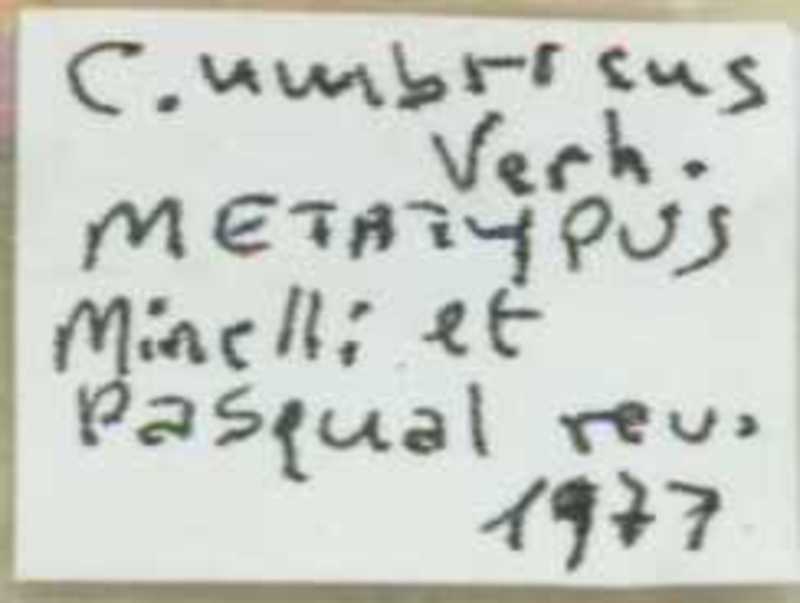 C. umbricus
Verh.
METATYPUS
Minelli et
Pasqual rev.
1977